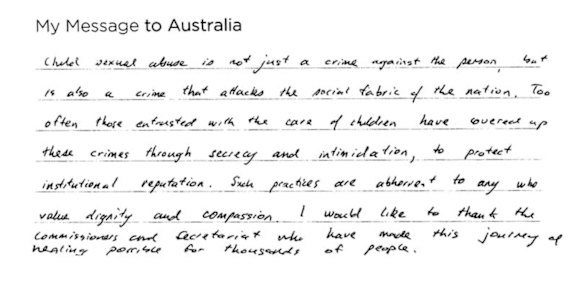 My Message to Australia
Child sexual abuse is not just a crime against the person, but
is also a crime that attacks the social fabric of the nation. Too
often those entrusted with the care of children have covered up
these crimes through secrecy and intimidation, to protect
institutional reputation. Such practices are abhorrent to any who
value dignity and compassion. I would like to thank the
Commissioners and Secretariat who have made this journey of
healing possible for thousands of people.